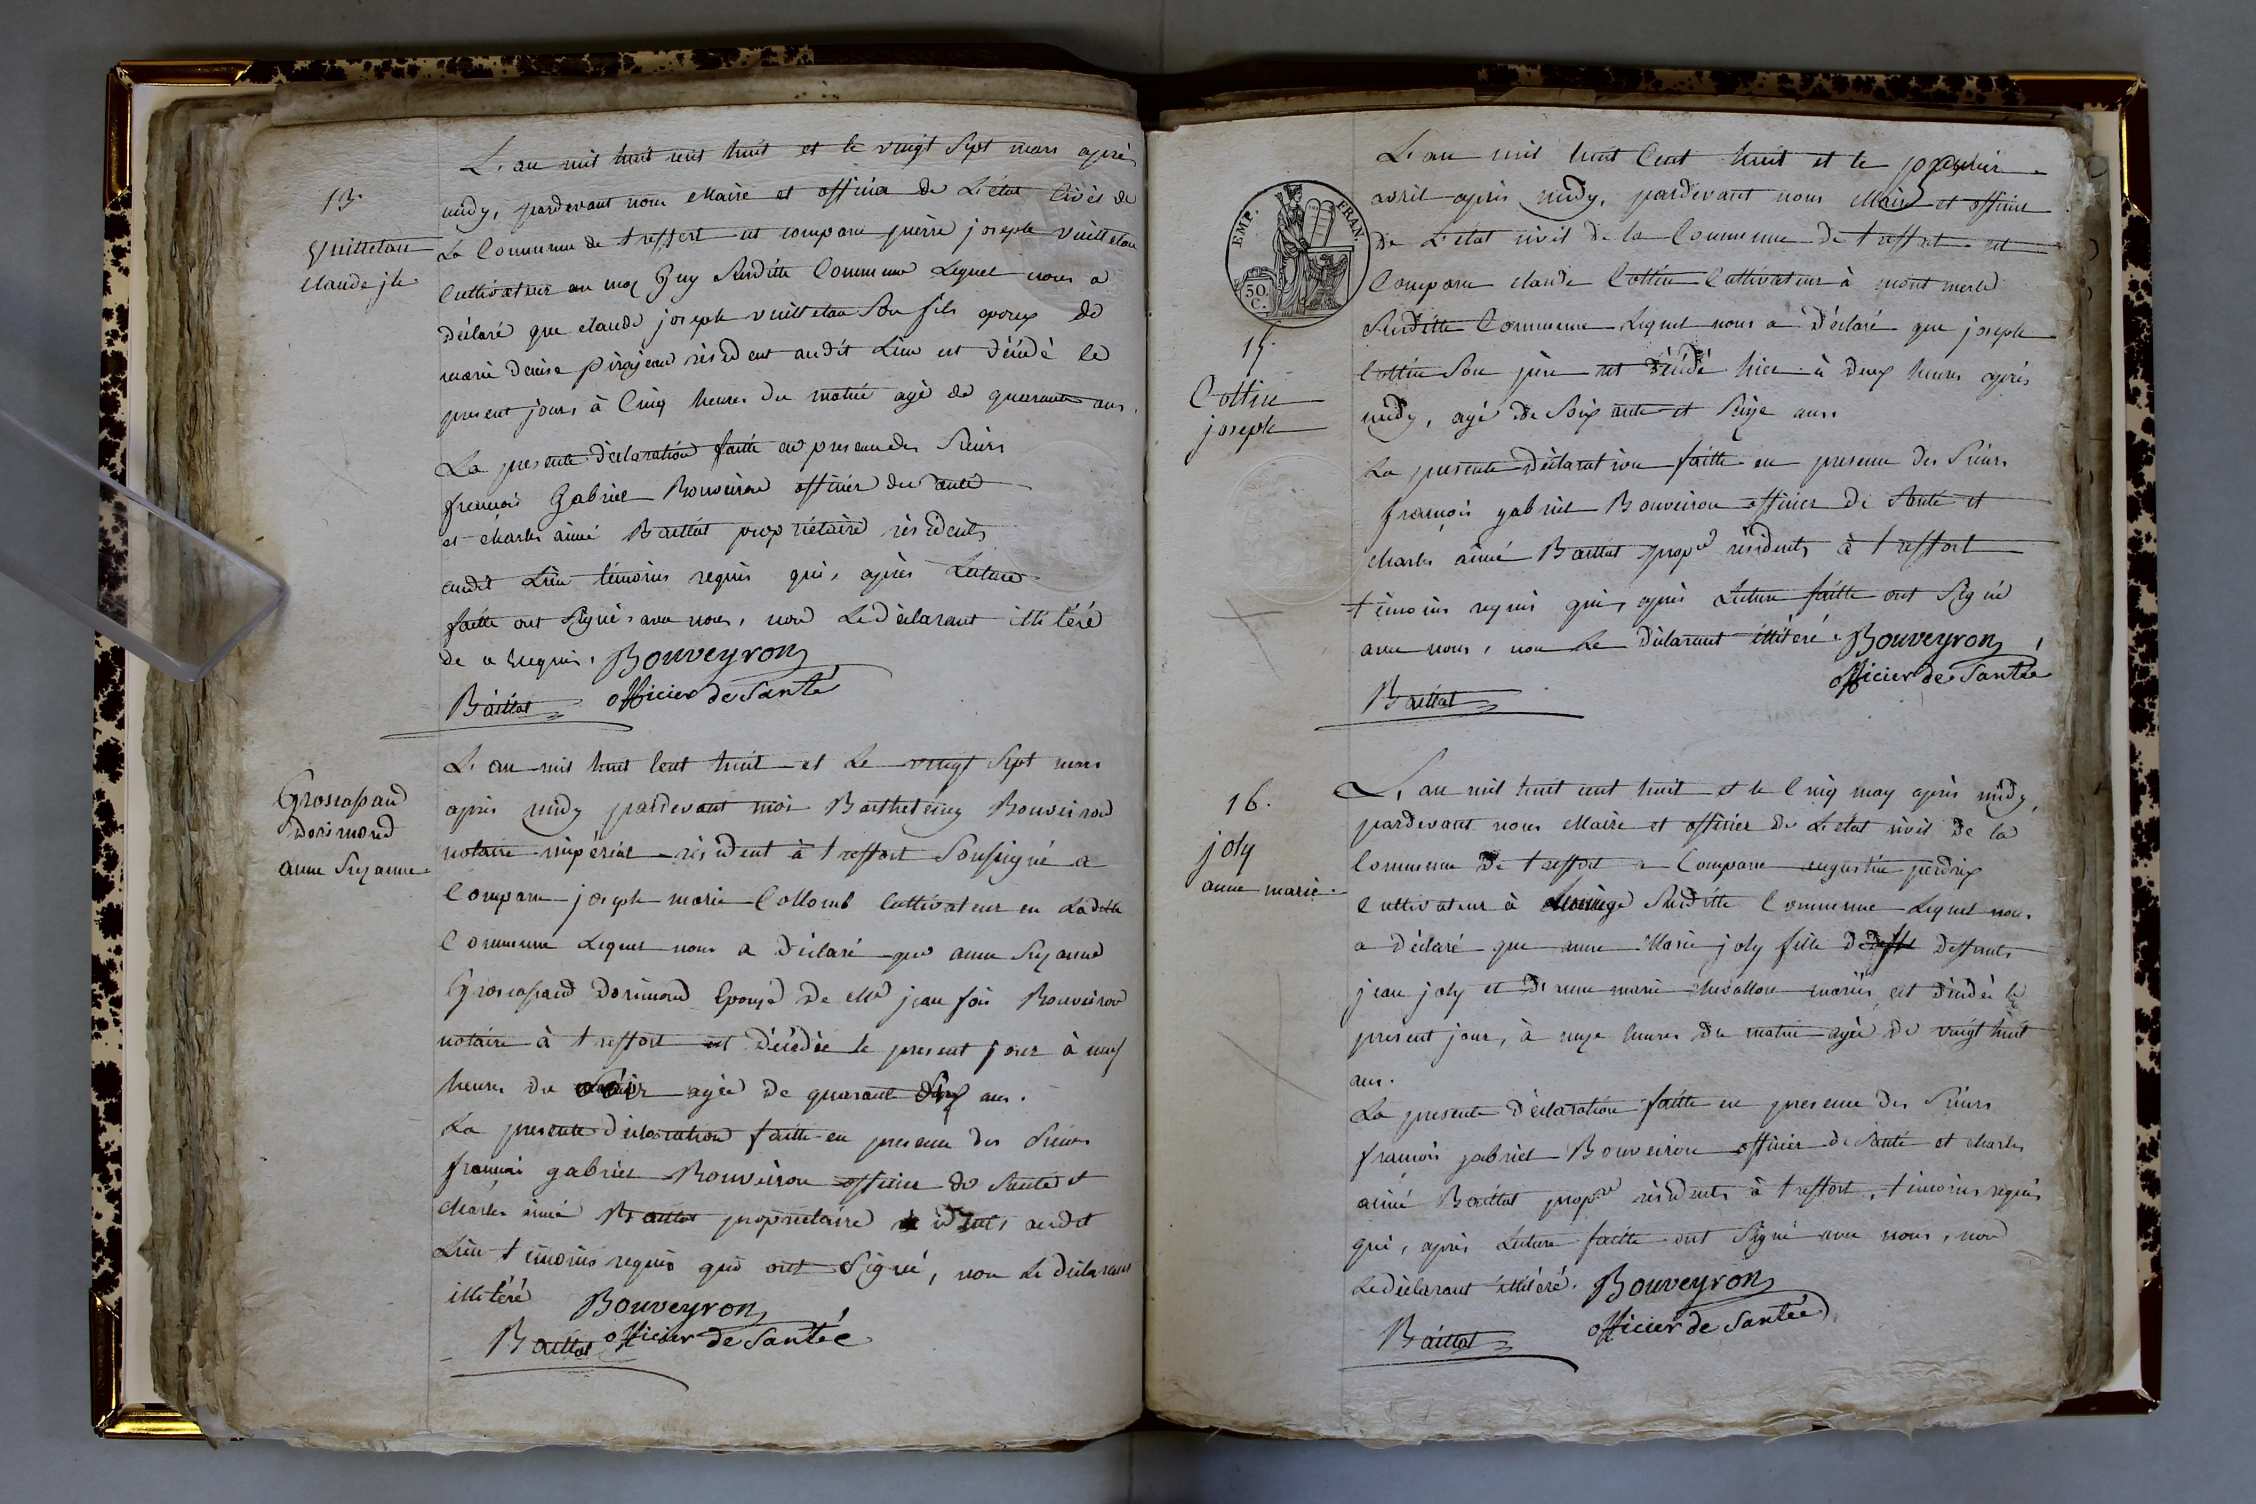 13.
Vuittelau
claude jh
L'an mil huit cent huit et le vingt Sept mars après
midy, pardevant nous Maire et officier de L'état Civil de
La Commune de treffort est comparu pierre joseph vuittelau
Cultivateur au Susditte Commune Lequel nous a
déclaré que claude joseph vuittelau Son fils epoux de
marie denise résident audit Lieu est décédé le
present jours à Cinq heures du matin agé de quarante ans.
La presente déclaration faitte en presence des Sieurs
françois Gabriel Bouveiron officier de santé
et charles aimé Baillat propriétaire résidents
audit Lieu témoins requis qui, après Lecture
faitte ont Signé avec nous, non Le déclarant illitéré
de ce Requis. Bouveyron
officier de Santé
Baillat
Groscassand
Dorimond
anne Suzanne
L'an mil huit cent huit et Le vingt Sept mars
après midy pardevant moi Barthelemy Bouveiron
notaire impérial résident à treffort Soussigné a
Comparu joseph marie Collomb Cultivateur en Laditte
Commune Lequel nous a déclaré que anne Suzanne
Groscassand Dorimond Epouze de Me jean fois Bouveiron
notaire à treffort est décédée le present jour à neuf
heures du soir agée de quarante Six ans.
La presente déclaration faitte en presence des Sieurs
françois gabriel Bouveiron officier de Santé et
charles aimé Baillat propriétaire résidents audit
Lieu témoins requis qui ont Signé, non Le déclarant
illitéré Bouveyron
Baillat officier de Santée
EMP. FRAN.
50 C.
15
Cottin
joseph
L'an mil huit Cent huit et le premier
avril après midy, pardevant nous Maire et officier
de L'état civil de la Commune de treffort est
Comparu claude Cottin Cultivateur à mont merle
Susditte Commune Lequel nous a déclaré que joseph
Cottin Son père est décédé hier à deux heures après
midy, agé de Soixante et Seize ans
La presente déclaration faitte en presence des Sieurs
françois gabriel Bouveiron officier de Santé et
charles aimé Baillat propre résidents à treffort
témoins requis qui, après Lecture faitte ont Signé
avec nous, non Le déclarant illitéré. Bouveyron
officier de Santée
Baillat
16.
joly
anne marie.
L'an mil huit cent huit et le Cinq may après midy,
pardevant nous Maire et officier de L'état civil de la
Commune de treffort a Comparu augustin perdrix
Cultivateur à Susditte Commune Lequel nous
a déclaré que anne Marie joly fille de deffunts
jean joly et marie chevallon mariés, est décédée le
present jour, à onze heures du matin agée de vingt huit
ans.
La presente déclaration faitte en presence des Sieurs
françois gabriel Bouveiron officier de Santé et charles
aimé Baillat propre résidents à treffort, témoins requis
qui, après Lecture faitte ont Signé avec nous, non
Le déclarant illitéré. Bouveyron
officier de Santée
Baillat